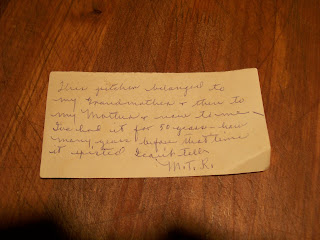 This pitcher belonged to
my Grandmother & then to
my Mother & now to me -
I've had it for 50 years - how
many years before that time
it existed I can't tell.
M. T. K.